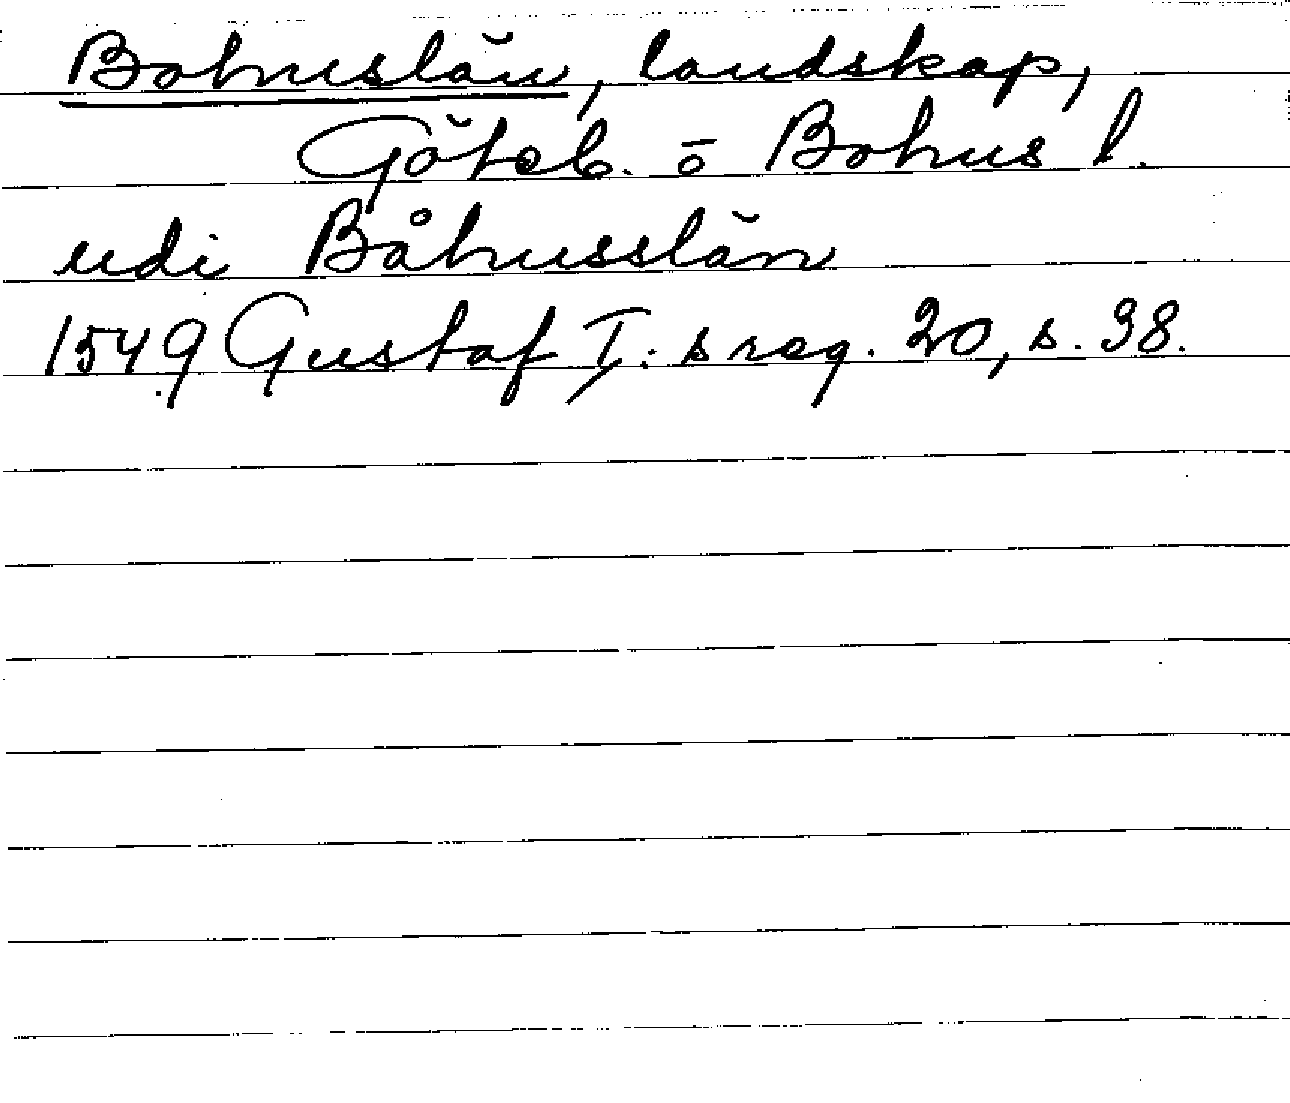 Bohuslän, landskap,
Göteb. o Bohus l.
udi Båhusslän
1549 Gustaf I:s reg. 20, s. 38.